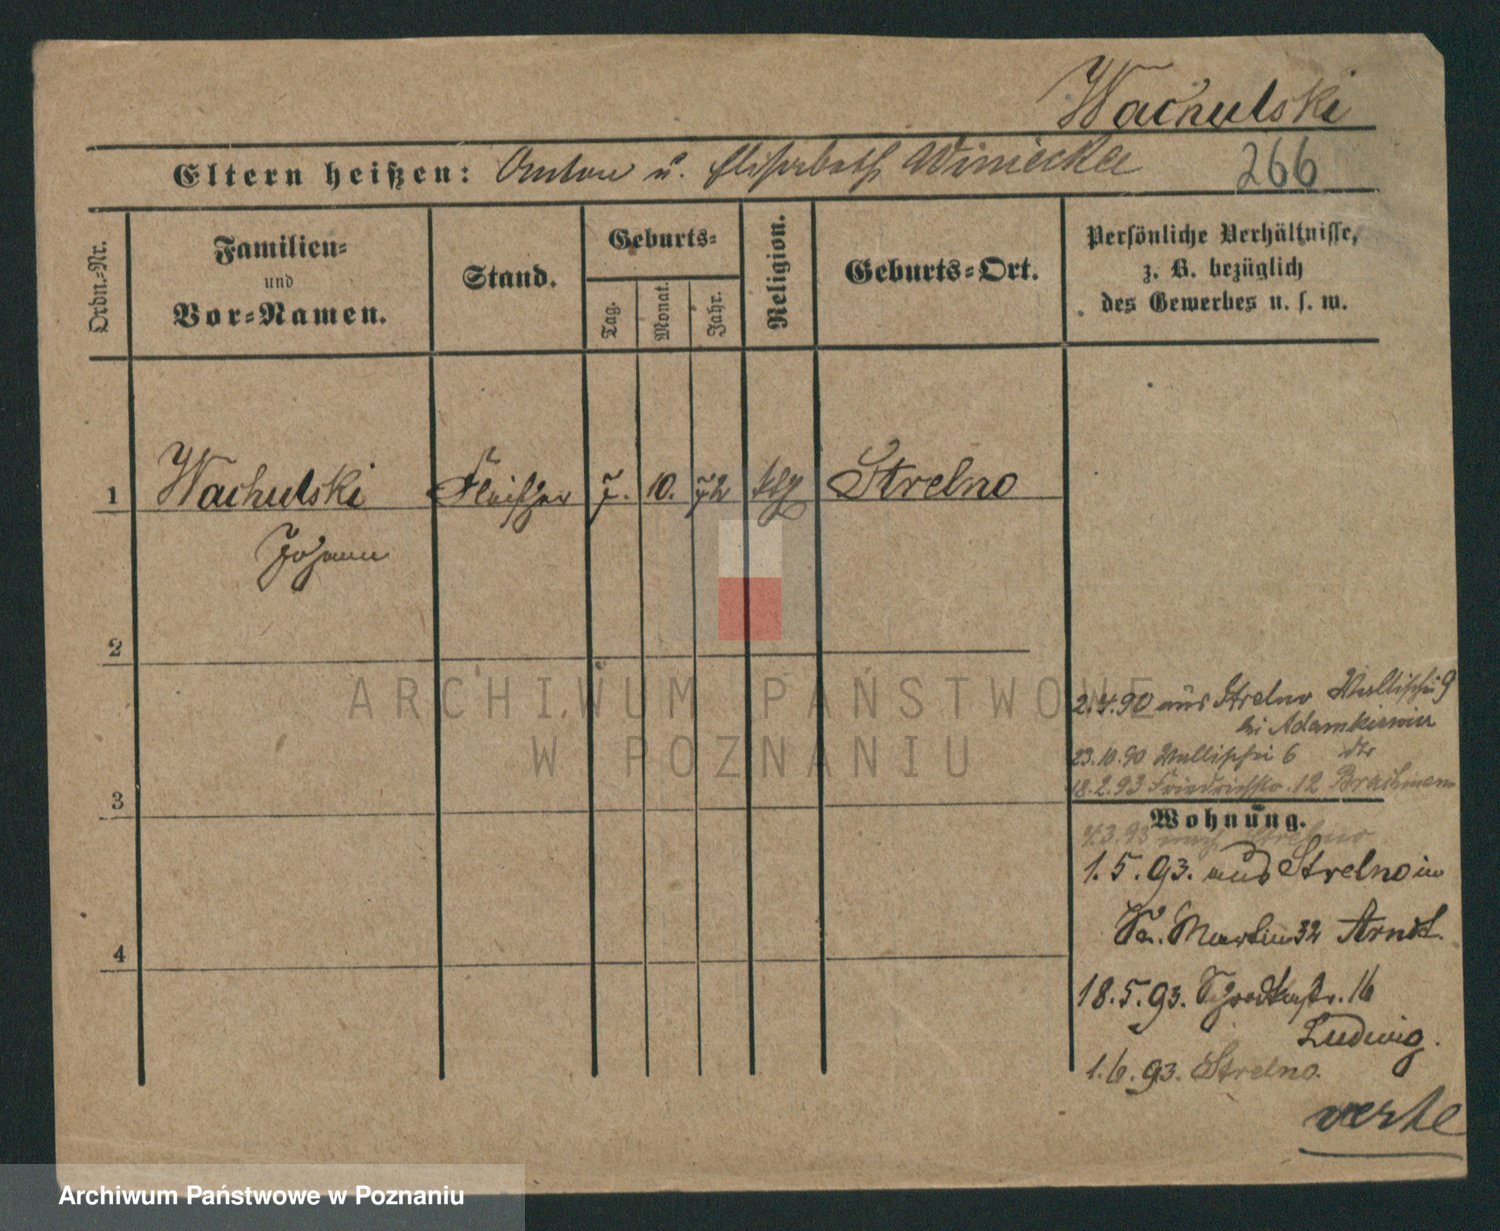 Wachulski
Eltern heißen: Anton u. Elisabeth Winiecka
266
Ordn.-Nr.
Familien-
und
Vor-Namen.
Stand.
Geburts-
Tag.
Monat.
Jahr.
Religion.
Geburts-Ort.
Persönliche Verhältnisse,
z. B. bezüglich
des Gewerbes u. s. w.
1 Wachulski Fleischer 7. 10. 72 ktg Strelno
Johann
2
3
4
2.4.90 aus Strelno Wallischei 9
bei Adamkiewicz
23.10.90 Wallischei 6 dtr
18.2.93 Friedrichstr. 12 Brachmann
Wohnung.
4.3.93 nach Strelno
1.5.93. aus Strelno in
St. Martin 32 Arndt.
18.5.93. Schrodkastr. 16
Ludwig.
1.6.93. Strelno.
verte
ARCHIWUM PAŃSTWOWE
W POZNANIU
Archiwum Państwowe w Poznaniu